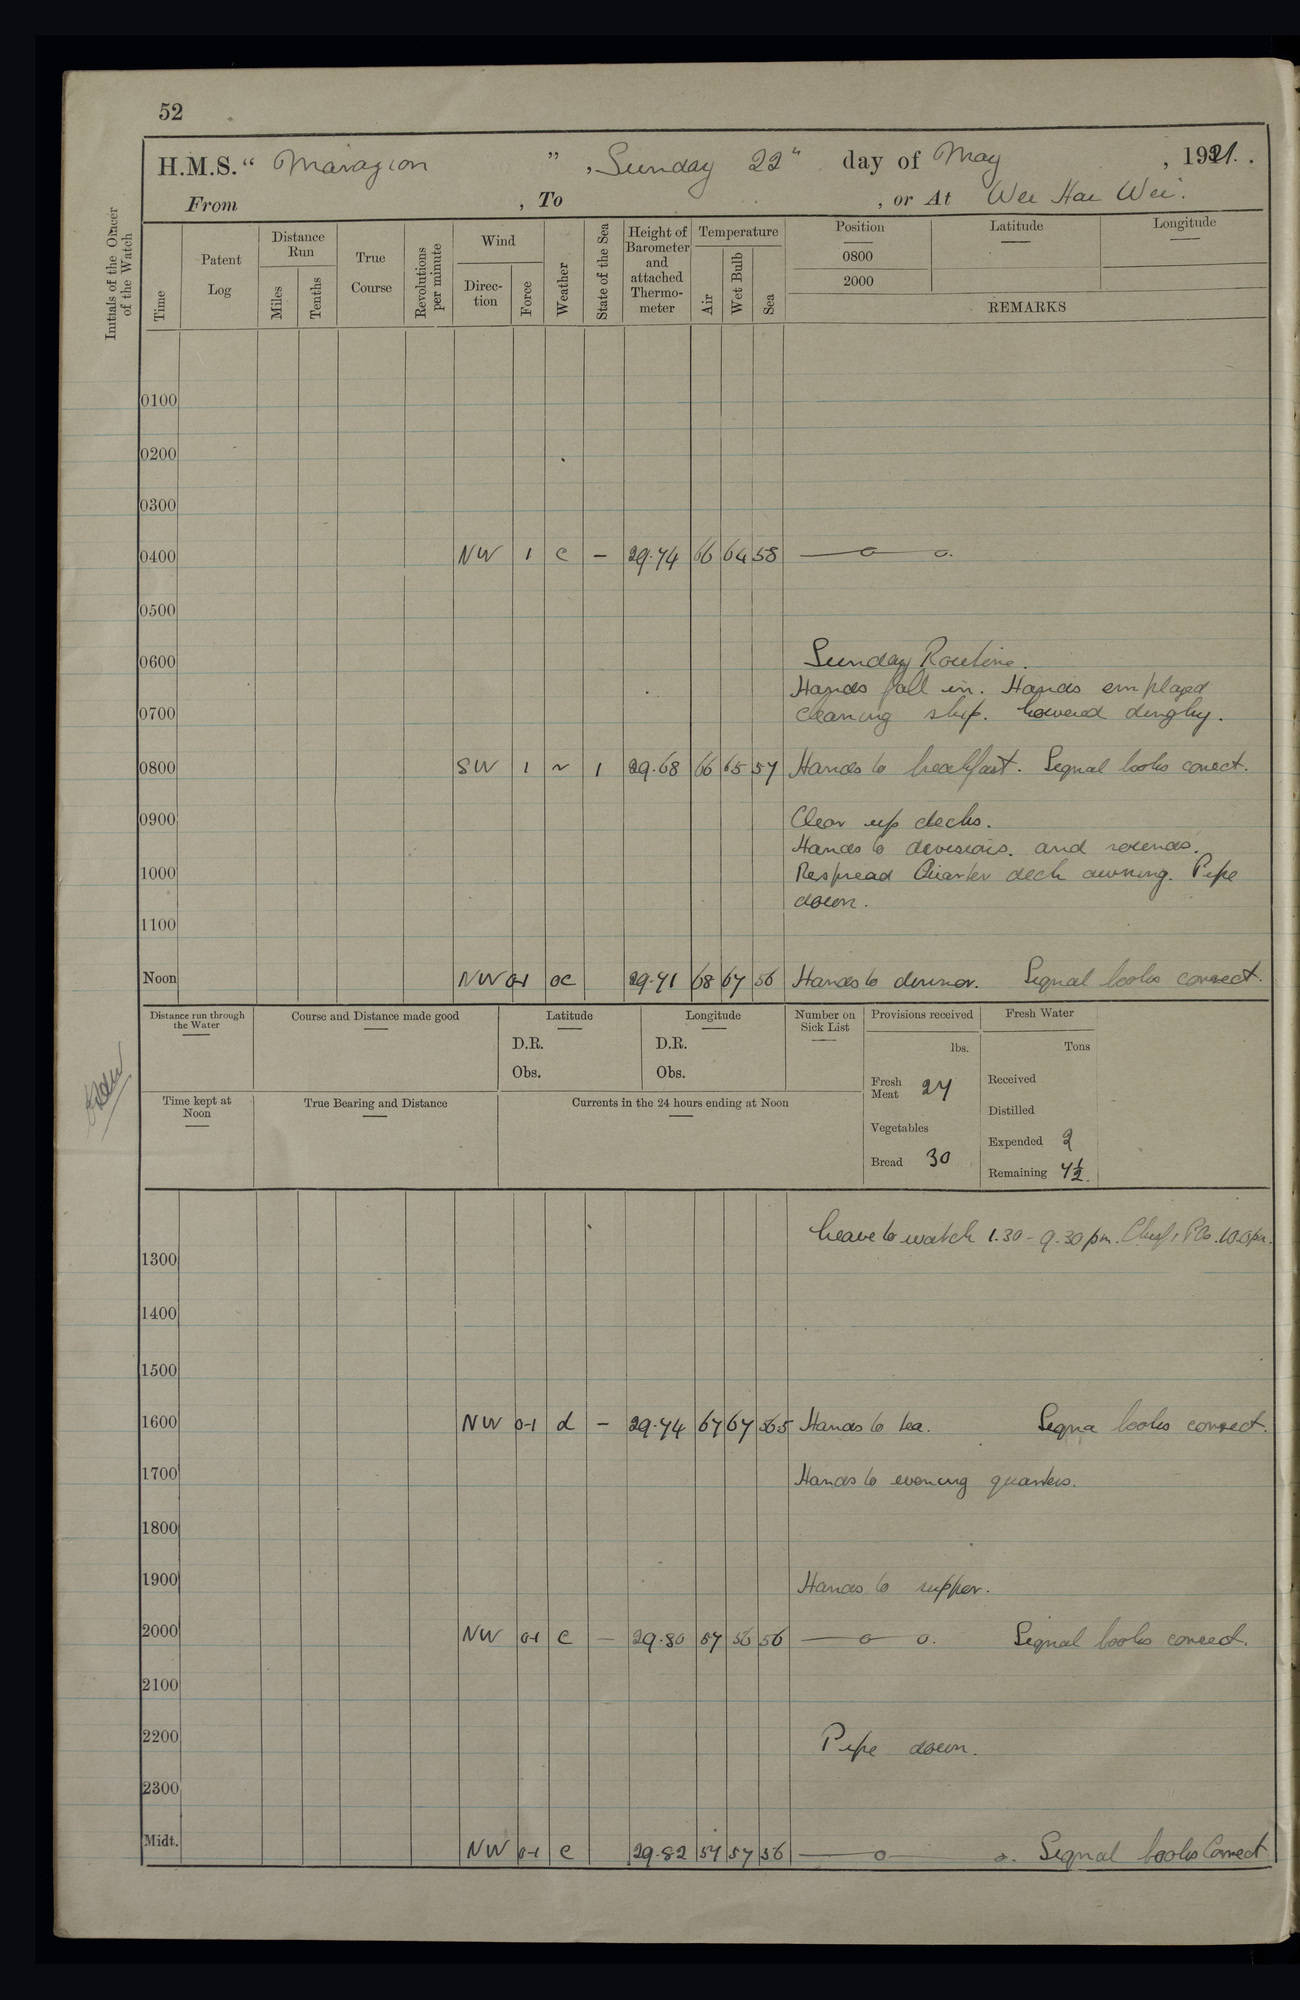 52
H.M.S. “ Marazion ” , Sunday 22" day of May , 1921.
From , To , or At Wei Hai Wei.
Initials of the Officer of the Watch
Time
Patent Log
Distance Run
Miles
Tenths
True Course
Revolutions per minute
Wind
Direc-tion
Force
Weather
State of the Sea
Height of Barometer and attached Thermo-meter
Temperature
Air
Wet Bulb
Sea
Position Latitude Longitude
0800
2000
REMARKS
0100
0200
0300
0400 NW 1 c — 29.74 66 64 58 —o— o.
0500
0600 Sunday Routine.
Hands fall in. Hands employed
0700 cleaning ship. Lowered dinghy.
0800 SW 1 ~ 1 29.68 66 65 57 Hands to breakfast. Signal books correct.
0900 Clear up decks.
Hands to divisions. and rounds.
1000 Respread Quarter deck awning. Pipe
down.
1100
Noon NW 0-1 oc 29.71 68 67 56 Hands to dinner. Signal books correct.
Distance run through the Water
Course and Distance made good
Latitude
D.R.
Obs.
Longitude
D.R.
Obs.
Number on Sick List
Provisions received
lbs.
Fresh Meat 27
Vegetables
Bread 30
Fresh Water
Tons
Received
Distilled
Expended 2
Remaining 7½.
Time kept at Noon
True Bearing and Distance
Currents in the 24 hours ending at Noon
Leave to watch 1.30 - 9.30 pm. Chief & POs. 10.0 pm.
1300
1400
1500
1600 NW 0-1 d — 29.74 67 67 56.5 Hands to tea. Signa books correct.
1700 Hands to evening quarters.
1800
1900 Hands to supper.
2000 NW 0-1 c — 29.80 57 56 56 —o— o. Signal books correct.
2100
2200 Pipe down.
2300
Midt. NW 0-1 c 29.82 57 57 56 —o— o. Signal books Correct